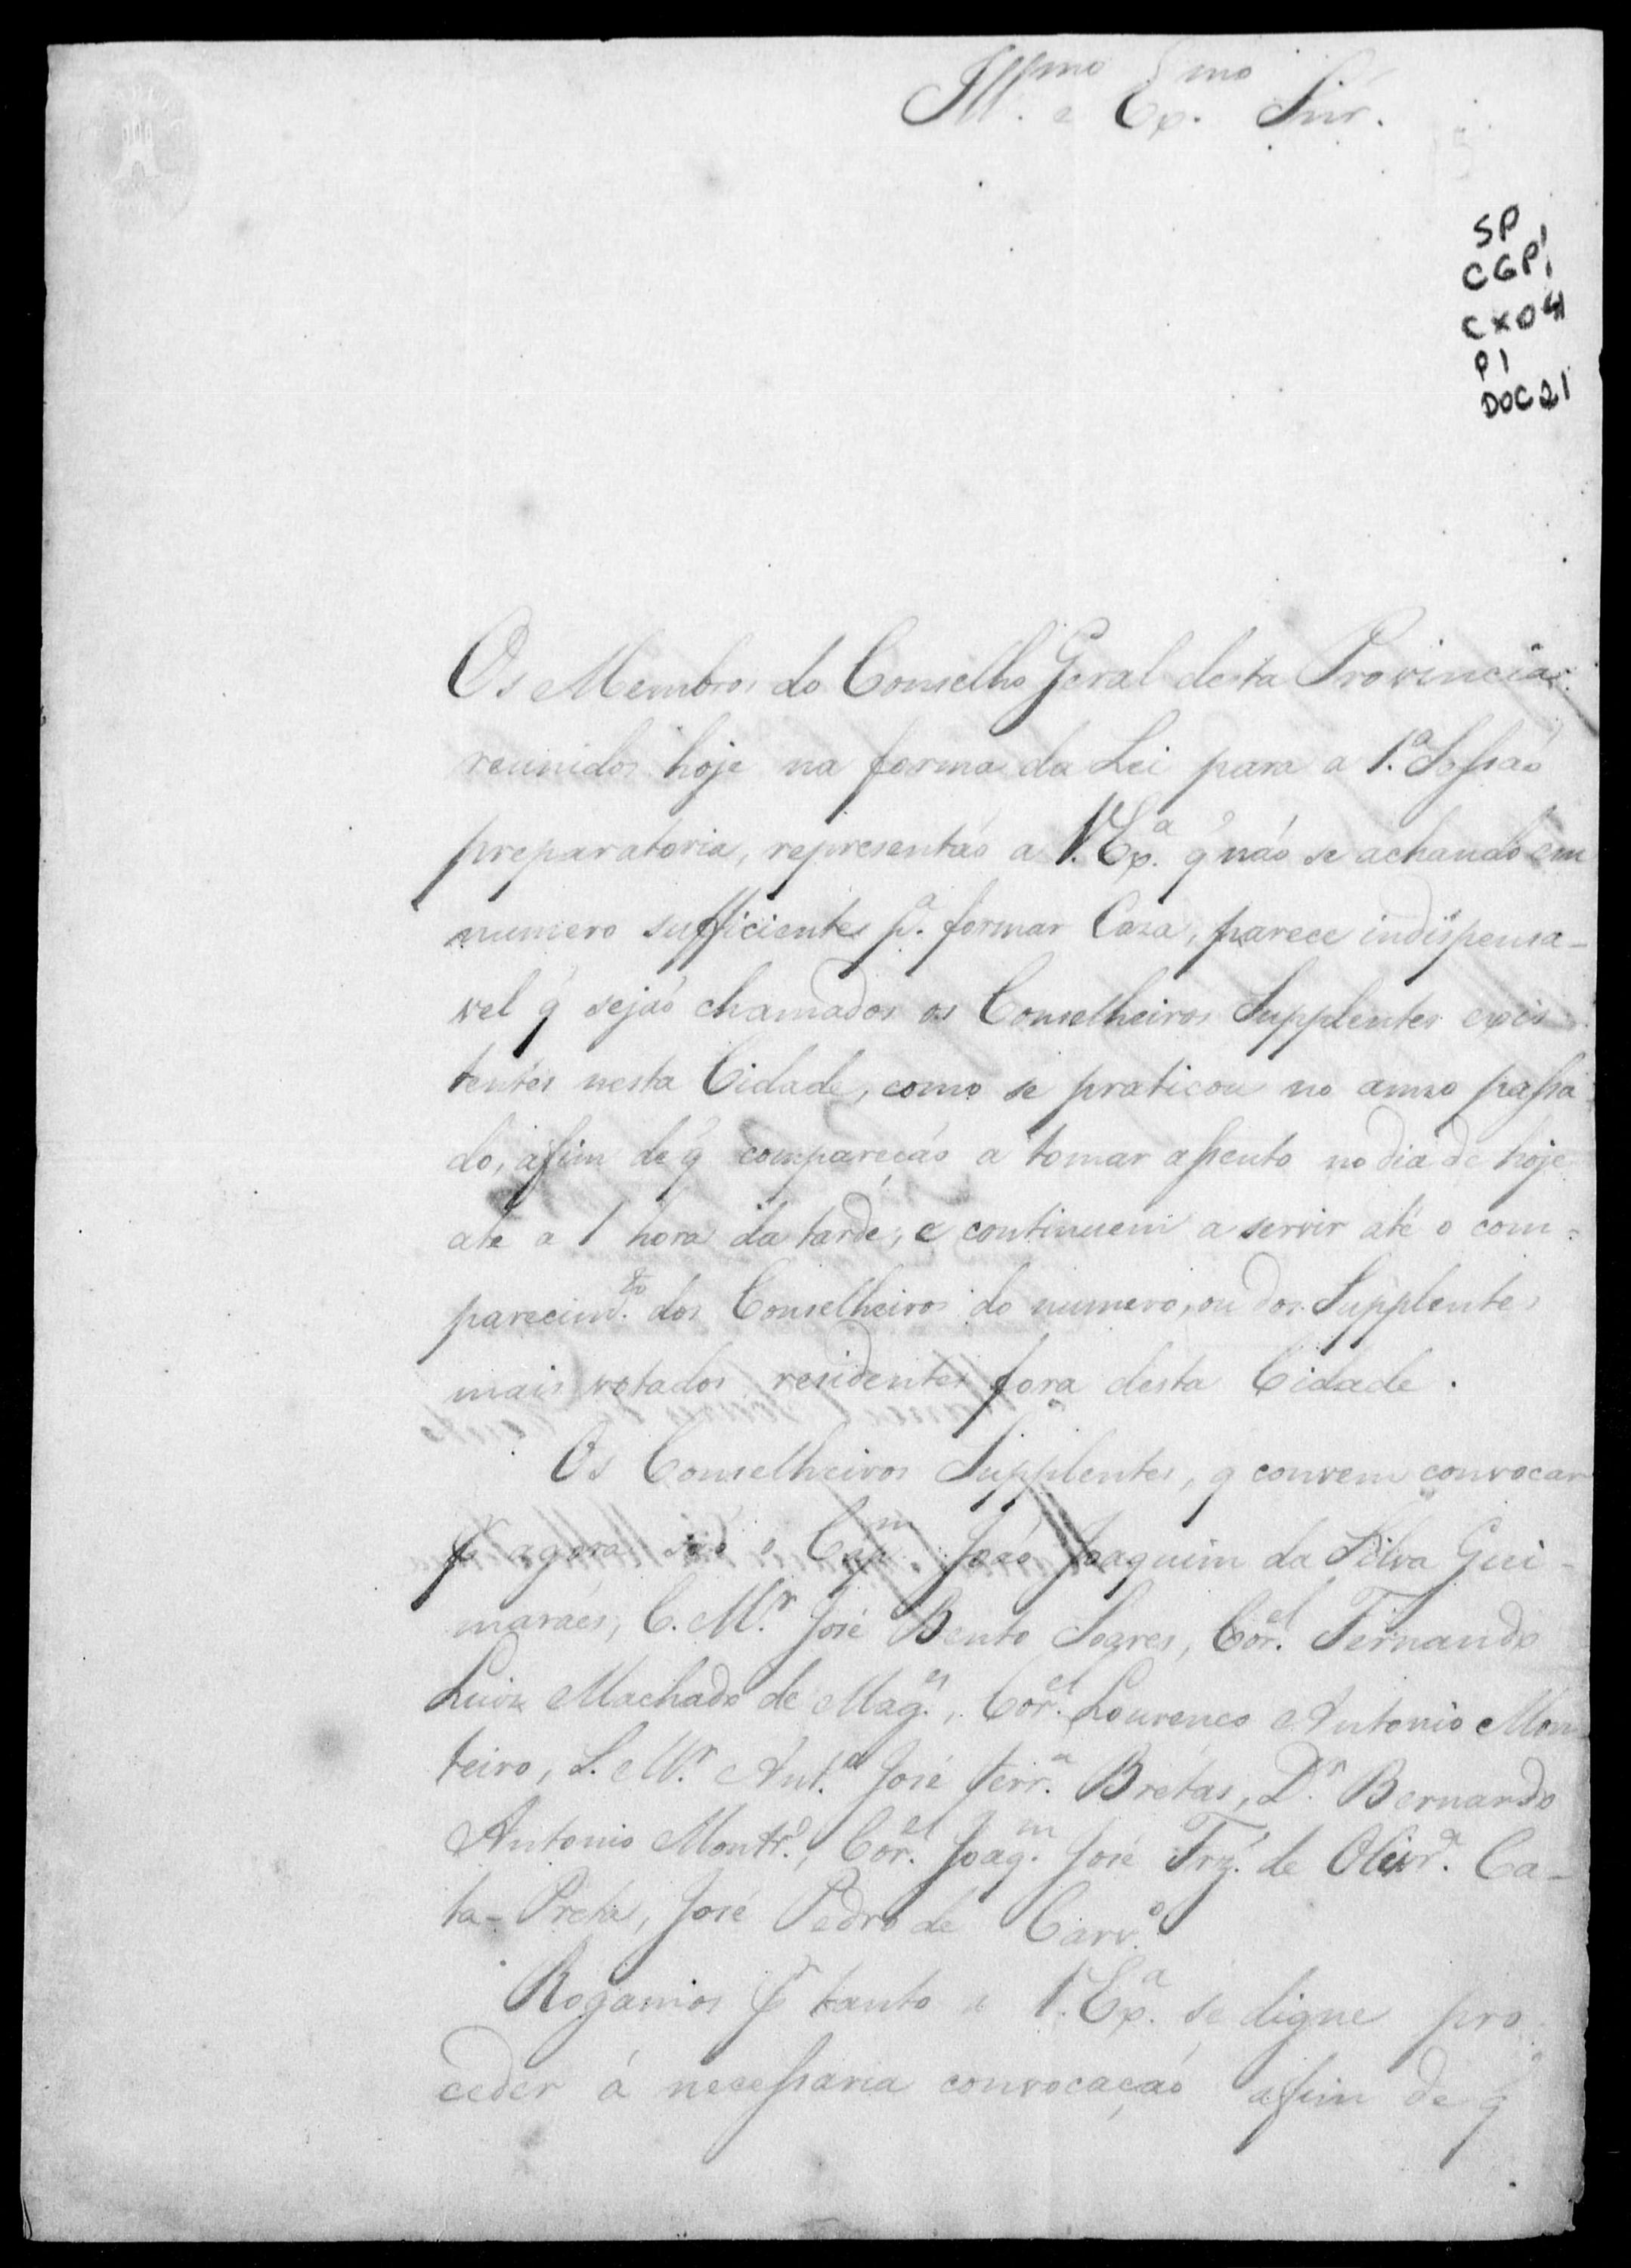 Ill.mo e Ex.mo Snr.
SP
CGP1
CX04
P1
DOC21
Os Membros do Conselho Geral desta Provincia
reunidos hoje na forma da Lei para a 1.ª Sessão
preparatoria, representão a V. Ex.ª q̃ não se achando em
numero sufficiente p.ª formar Caza, parece indispensa-
vel q̃ sejão chamados os Conselheiros Supplentes exis
tentes nesta Cidade, como se praticou no anno passa
do, afim de q̃ compareção a tomar assento no dia de hoje
ate a 1 hora da tarde, e continuem a servir até o com=
parecim.to dos Conselheiros do numero, ou dos Supplentes
mais votados residentes fora desta Cidade.
Os Conselheiros Supplentes, q̃ convem convocar
p.r agora são o Cap.m João Joaquim da Silva Gui-
marães, C. M.r José Bento Soares, Cor.el Fernando
Luiz Machado de Mag.es, Cor.el Lourenço Antonio Mon
teiro, S. M.r Ant.o José Ferr.ª Bretas, D.r Bernardo
Antonio Montr.o, Cor.el Joaq.m José Frz. de Olivr.ª Ca-
ta-Preta, José Pedro de Carv.o
Rogamos p.r tanto a V. Ex.ª se digne pro
ceder á necessaria convocação afim de q̃